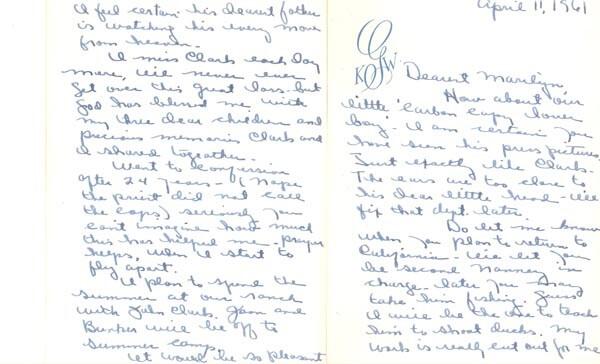 April 11, 1961
Dearest Marilyn,
How about our
little 'carbon copy lover
boy' - I am certain you
have seen his press pictures,
Just exactly like Clark.
The ears are too close to
his dear little head - I'll
fix that dept. later.
Do let me know
when you plan to return to
California - I'll let you
be second Nanney in
charge - later you may
take him fishing. Guess
I will be the one to teach
him to shoot ducks. My
work is really cut out for me
I feel certain his dearest father
is watching his every move
from heaven.
I miss Clark each day
more, I'll never ever
get over this great loss - but
God has blessed me with
my three dear children and
precious memories Clark and
I shared together.
Went to Confession
after 24 years - (Nope
the priest did not call
the cops) seriously you
can't imagine how much
this has helped me - prayer
helps, when I start to
fly apart.
I plan to spend the
summer at our ranch
with John Clark. Joan and
Bunker will be off to
summer camp.
It would be so pleasant